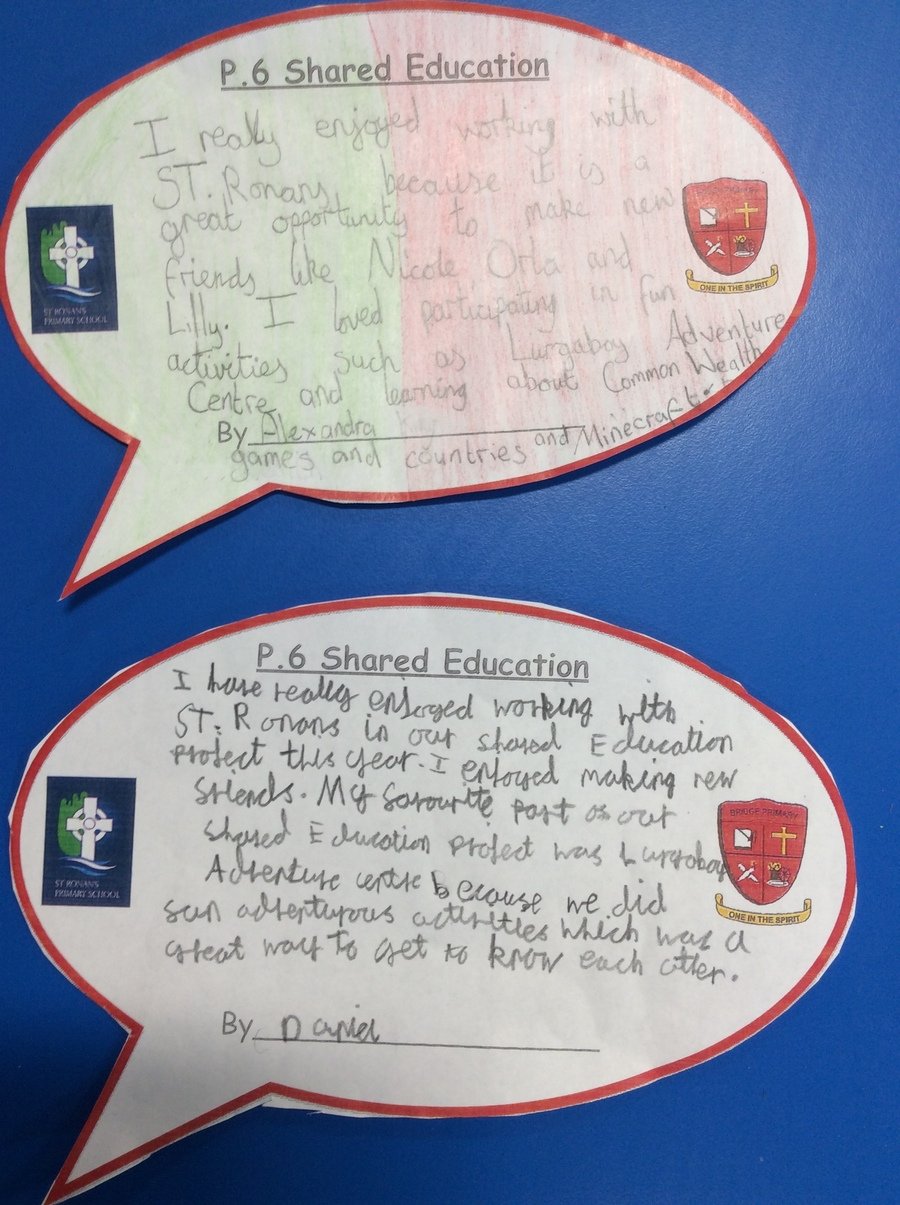 P.6 Shared Education
I really enjoyed working with
ST. Ronans because it is a
great opportunity to make new
friends like Nicole Orla and
Lilly. I loved participating in fun
activities such as Lurgaboy Adventure
Centre and learning about Common Wealth
By Alexandra
games and countries and Minecraft.
ST RONAN'S
PRIMARY SCHOOL
ONE IN THE SPIRIT
P.6 Shared Education
I have really enjoyed working with
ST. Ronans in our shared Education
project this year. I enjoyed making new
friends. My favourite part of our
shared Education project was Lurgaboy
Adventure centre because we did
fun adventurous activities which was a
great way to get to know each other.
By Daniel
ST RONAN'S
PRIMARY SCHOOL
BRIDGE PRIMARY
ONE IN THE SPIRIT